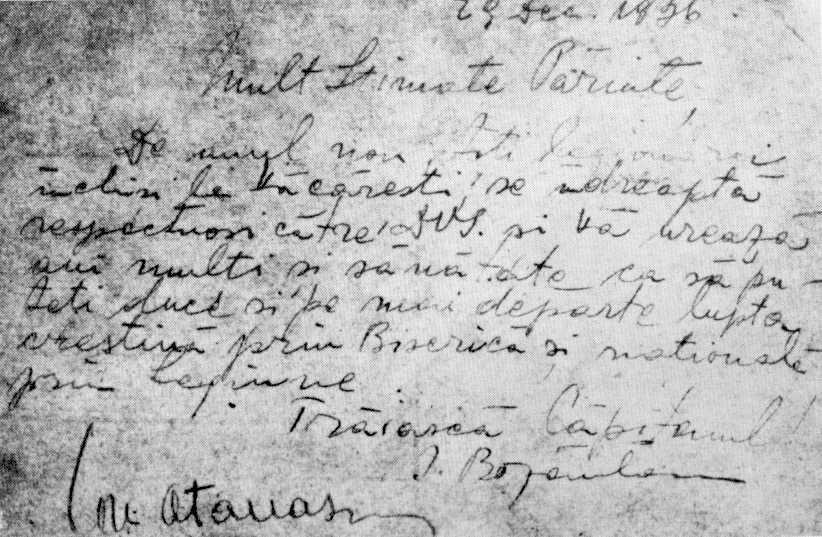 29 Dec. 1936.
Mult Stimate Părinte,
De anul nou, toti legionarii
închisi la Văcăresti, se îndreaptă
respectuosi către DVS. si Vă urează
ani multi si sănătate ca să pu-
teti duce si pe mai departe lupta
crestină prin Biserică si natională
prin Legiune.
Trăiască Căpitanul!
I. Bozântan
M. Atanasiu